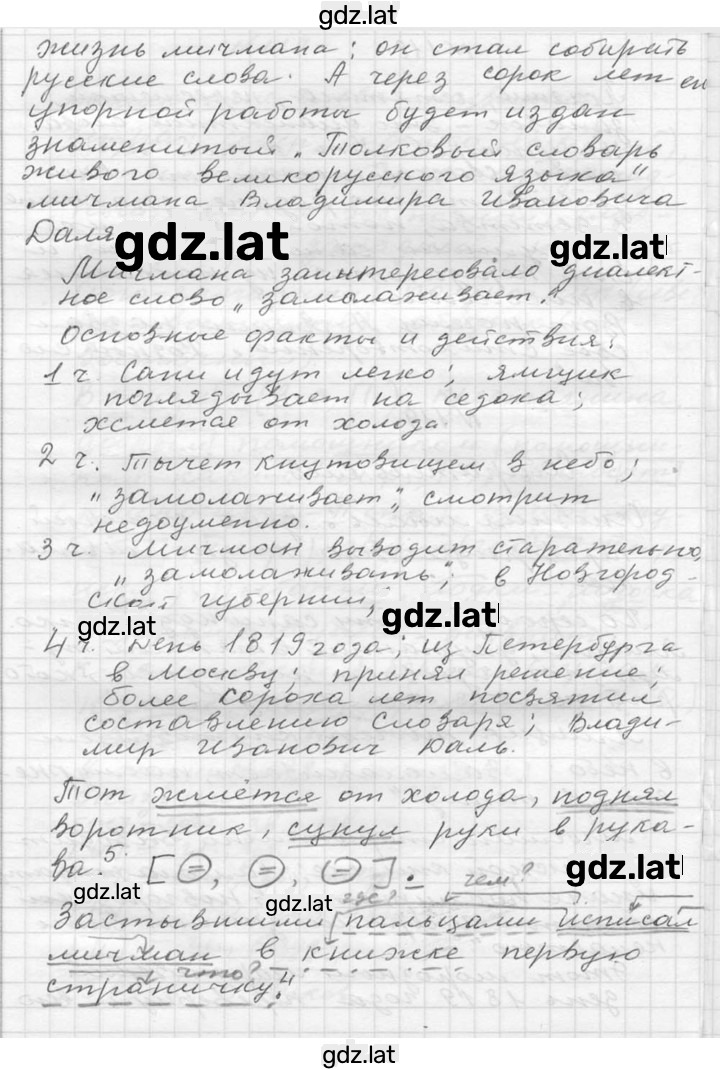 gdz.lat
жизнь мичмана: он стал собирать
русские слова. А через сорок лет ей
упорной работы будет издан
знаменитый „Толковый словарь
живого великорусского языка"
мичмана Владимира Ивановича
Даля
gdz.lat gdz.lat
Мичмана заинтересовало диалект-
ное слово „замолаживает".
Основные факты и действия:
1 ч. Сани идут легко; ямщик
поглядывает на седока;
жмётся от холода.
2 ч. Тычет кнутовищем в небо;
„замолаживает", смотрит
недоуменно.
3 ч. Мичман выводит старательно,
„замолаживать"; в Новгород-
ской губернии;
gdz.lat gdz.lat
4 ч. День 1819 года; из Петербурга
в Москву; принял решение;
более сорока лет посвятил
составлению словаря; Влади-
мир Иванович Даль.
Тот жмётся от холода, поднял
воротник, сунул руки в рука-
ва.⁵ [=, =, =].
gdz.lat gdz.lat gdz.lat
где? чем?
Застывшими пальцами исписал
мичман в книжке первую
что?
страничку.⁴
gdz.lat